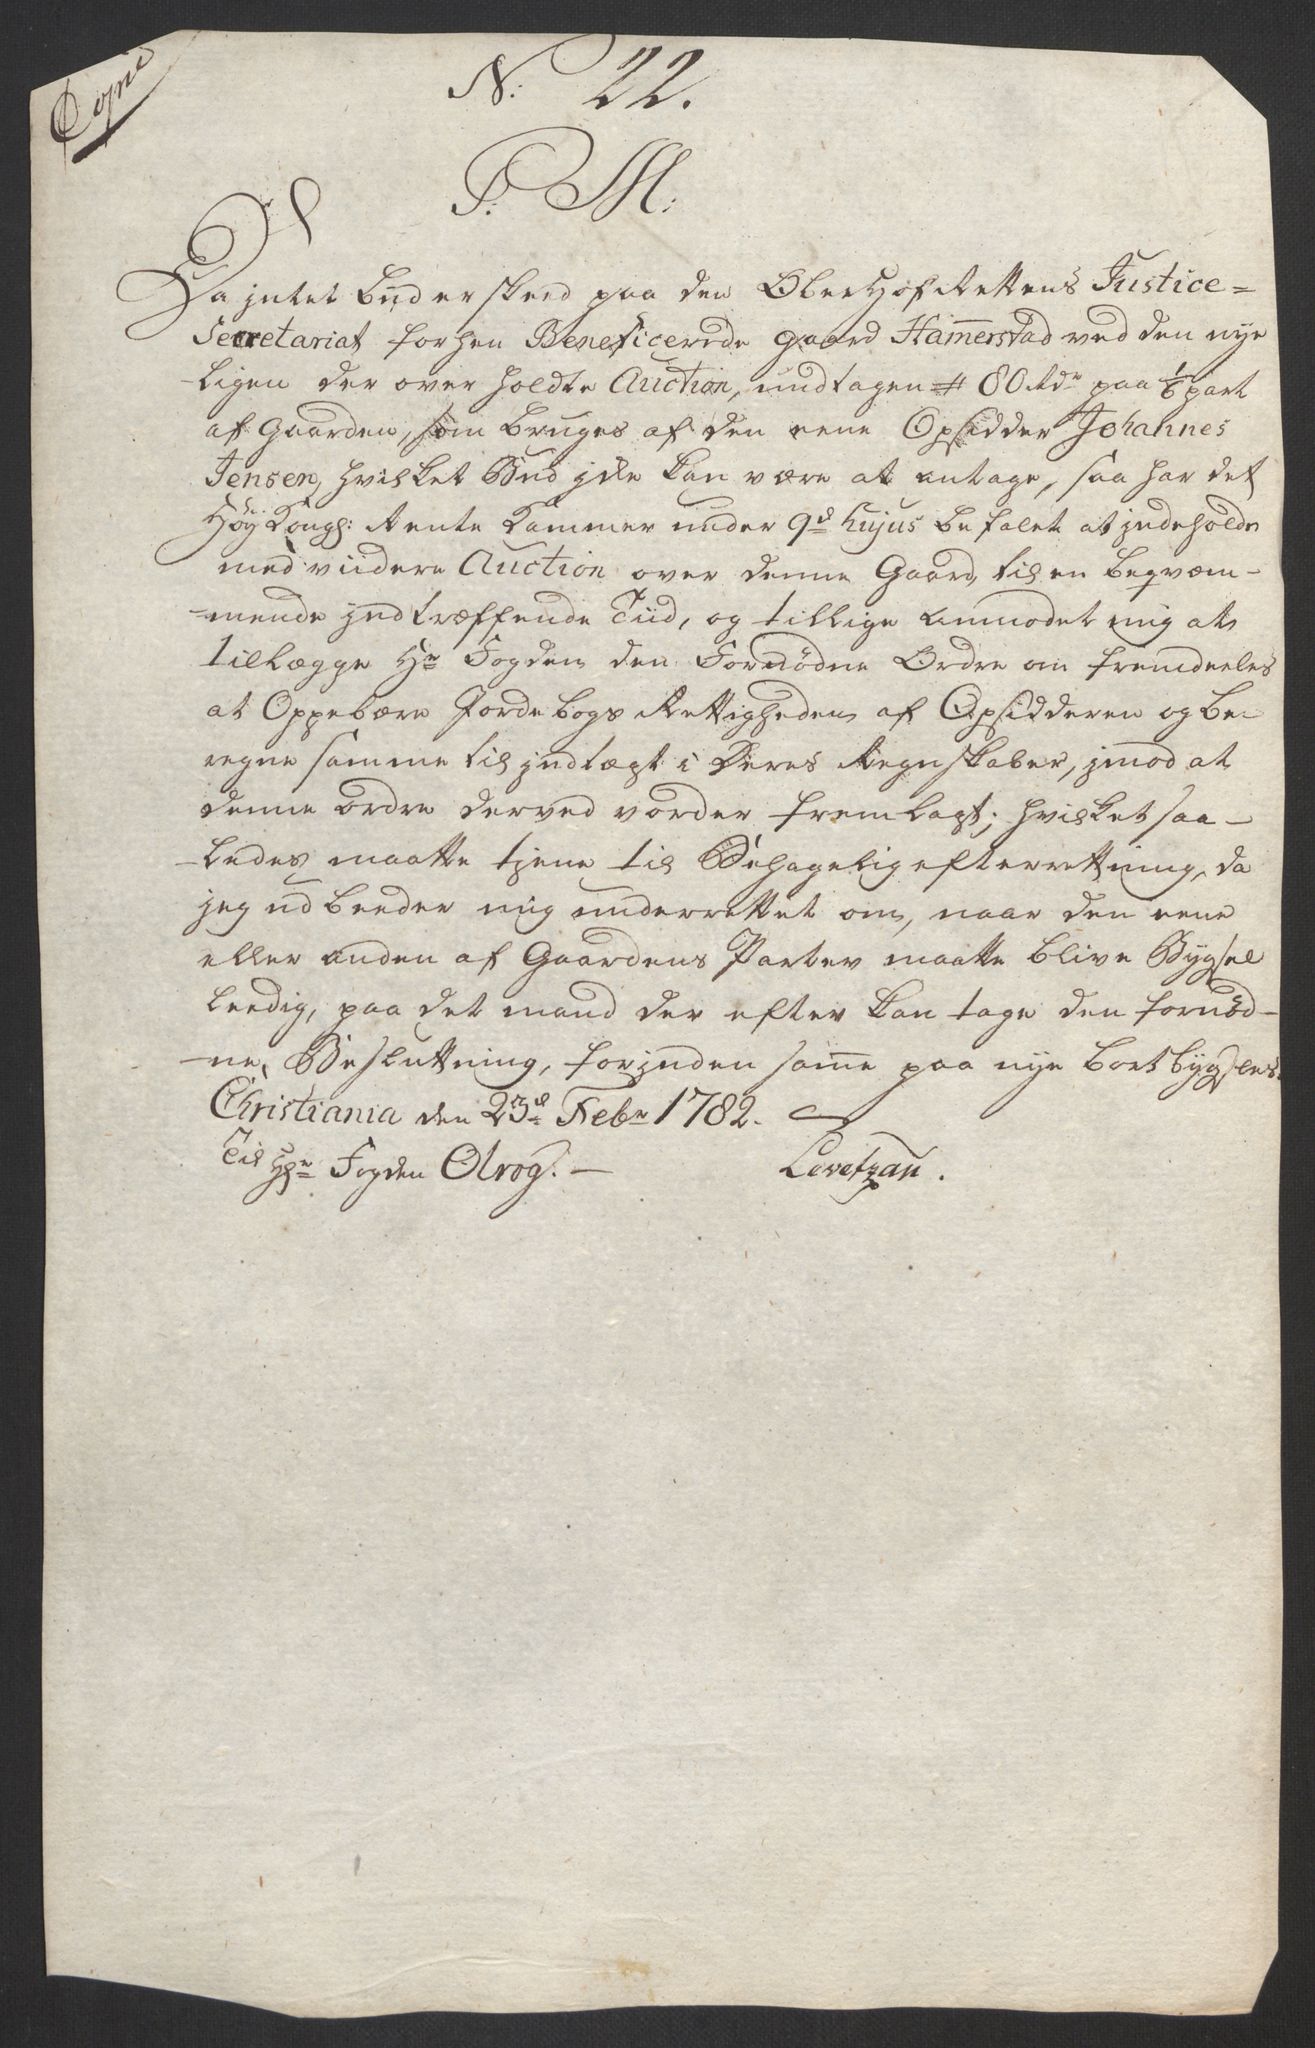 Copie
N: 22.
P: M:
Da intet bud er skeed paa den OberHofRettens Justice-
Secretariat forhen Beneficerede gaard Ham̅erstad ved den nye
ligen der over holdte Auction, undtagen # 80 rdr paa 1/6 part
af Gaarden, som bruges af den eene Opsidder Johannes
Jensen, hvilket Bud ikke kan være at antage, saa har det
Høy Kongl: Rente Kammer under 9d hujus befalet at indeholde
med viidere Auction over denne Gaard, til en beqvem-
mende indtræffende Tiid, og tillige anmodet mig at
tillægge Hr Fogden den Fornødne Ordre om fremdeeles
at Oppebære Jordebogs Rettigheden af Opsidderen og be
regne samme til indtægt i Deres Regnskaber, imod at
denne ordre derved vorder fremlagt; hvilket saa-
ledes maatte tjene til Behagelig efterretning, da
jeg udbeeder mig underrettet om, naar den eene
eller anden af Gaardens Parter maatte blive Bygsel
leedig, paa det mand der efter kan tage den fornød-
ne, Beslutning, forinden sam̅e paa nye bortbygsles.
Christiania den 23d Febr 1782.
Til Hr Fogden Olrog. Levetzau.